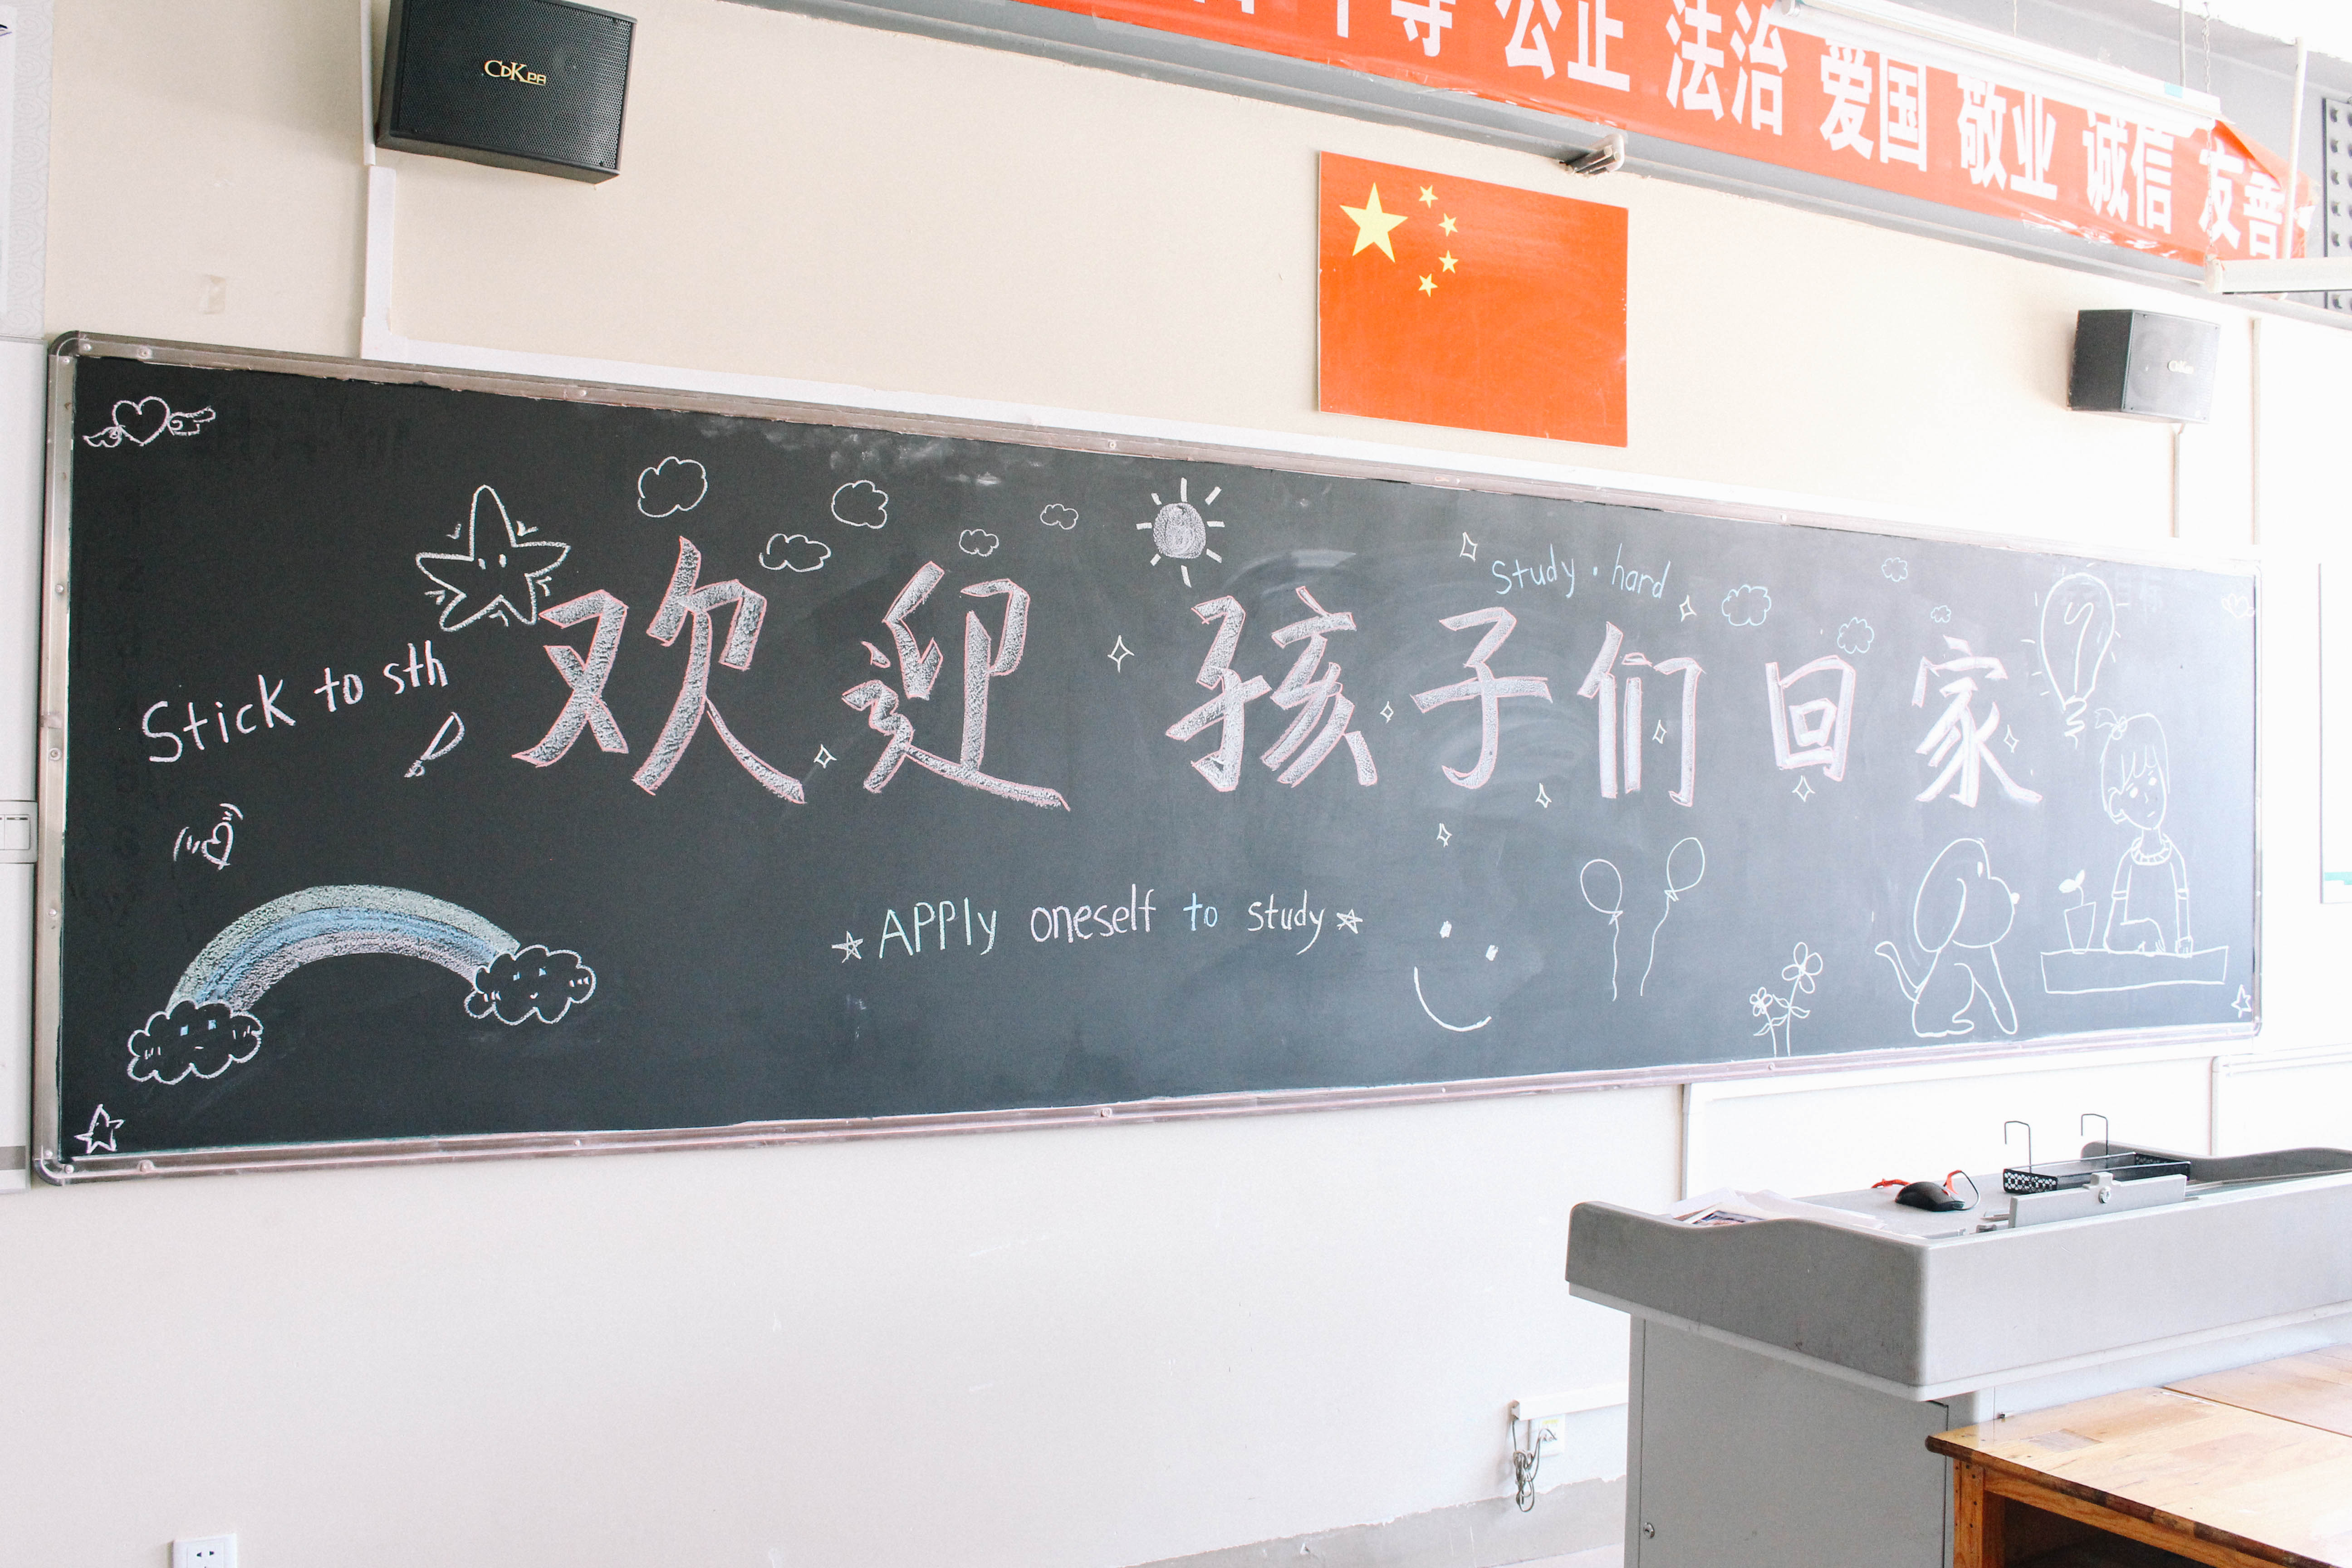 CDKPA
平等 公正 法治 爱国 敬业 诚信 友善
study · hard
欢迎 孩子们回家
Stick to sth
APPly oneself to study